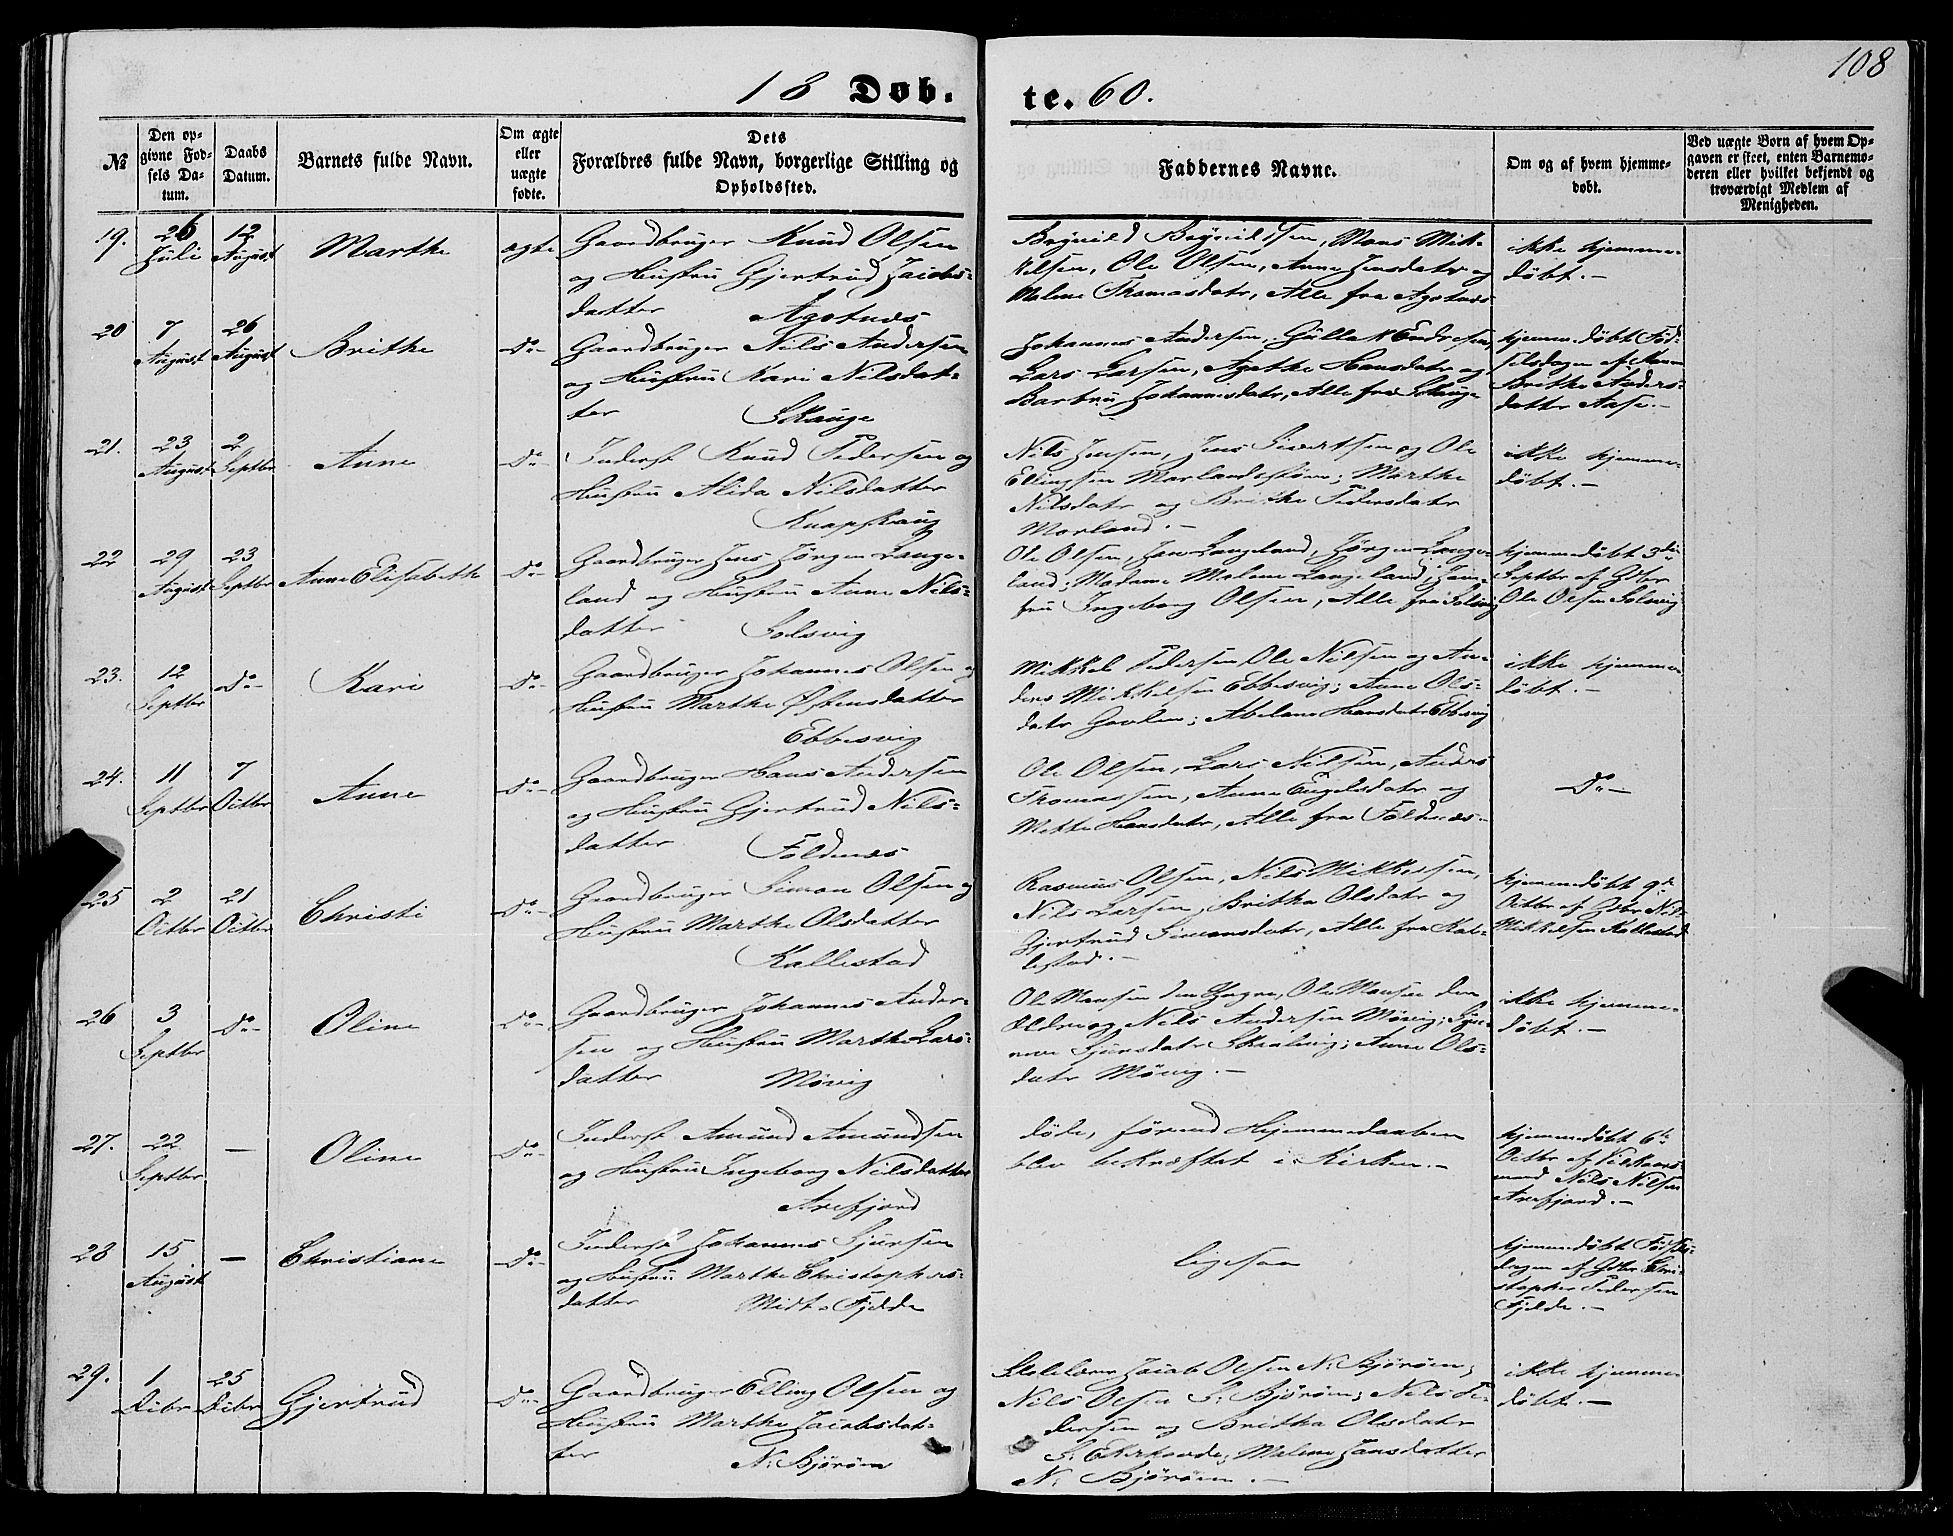 108
18 Døb-
te. 60.
№
Den op-
givne Fød-
sels Da-
tum.
Daabs
Datum.
Barnets fulde Navn.
Om ægte
eller
uægte
fødte.
Dets
Forældres fulde Navn, borgerlige Stilling og
Opholdssted.
Faddernes Navne.
Om og af hvem hjemme-
døbt.
Ved uægte Børn af hvem Op-
gaven er skeet, enten Barnemo-
deren eller hvilket bekjendt og
troværdigt Medlem af
Menigheden.
19.
26
Juli
12
August
Marthe
ægte
Gaardbruger Knud Olsen
og Hustru Gjertrud Jacobs-
datter Agotnæs
Brynild Brynildsen, Mons Mik-
kelsen, Ole Olsen, Anne Jensdatr og
Malene Thomasdatr, Alle fra Agotnæs
ikke hjemme-
døbt. -
20
7
August
26
August
Brithe
Do-
Gaardbruger Nils Andersen
og Hustru Kari Nilsdat-
ter
Skauge
Johannes Andersen, Gulla Endresen,
Lars Larsen, Agathe Hansdatr og
Barbru Johannesdatr, Alle fra Skauge
hjemmedøbt Fød-
selsdagen af Kone
Brithe Anders-
datter Aase. -
21.
23
August
2
Septbr
Anne
Do-
Inderst Knud Pedersen og
Hustru Alida Nilsdatter
Knapskaug
Nils Jensen, Jens Sivertsen og Ole
Ellingsen Morlandstøen; Marthe
Nilsdatr og Brithe Pedersdatr
Morland. -
ikke hjemme-
døbt. -
22
29
August
23
Septbr
Anne Elisabeth
Do-
Gaardbruger Jens Jørgen Lange-
land og Hustru Anne Nils-
datter Solsvig
Ole Olsen, Jens Langeland, Jørgen Lange-
land; Madame Malene Langeland; Jom-
fru Ingeborg Olsen, Alle fra Solsvig
hjemmedøbt 3die
Septbr af Gdbr
Ole Olsen Solsvig
23.
12
Septbr
Do-
Kari
Do-
Gaardbruger Johannes Olsen og
Hustru Marthe Østensdatter
Ebbesvig
Mikkel Pedersen, Ole Nilsen og An-
ders Mikkelsen Ebbesvig; Anne Ols-
datr Gavlen; Abelone Hansdatr Ebbesvig
ikke hjemme-
døbt. -
24.
11
Septbr
7
Octbr
Anne
Do-
Gaardbruger Hans Andersen
og Hustru Gjertrud Nils-
datter Foldnæs
Ole Olsen, Lars Nilsen, Anders
Thomassen, Anne Engelsdatr og
Mette Hansdatr, Alle fra Foldnæs. -
Do-
25
2
Octbr
21
Octbr
Christi
Do-
Gaardbruger Simon Olsen og
Hustru Marthe Olsdatter
Kallestad
Rasmus Olsen, Nils Mikkelsen,
Nils Larsen, Britha Olsdatr og
Gjertrud Simonsdatr, Alle fra Kal-
lestad. -
hjemmedøbt 9de
Octbr af Gdbr Nils
Mikkelsen Kallestad
26
3
Septbr
Do-
Oline
Do-
Gaardbruger Johannes Ander-
sen og Hustru Marthe Lars-
datter Møvig
Ole Monsen den Yngre, Ole Monsen den
Ældre og Nils Andersen Møvig; Syn-
neve Sjursdatr Skaalvig; Anne Ols-
datr Møvig. -
ikke hjemme-
døbt. -
27.
22
Septbr
-
Oline
Do-
Inderst Amund Amundsen
og Hustru Ingeborg Nilsdatter
Arefjord
døde, førend Hjemmedaaben
blev bekræftet i Kirken. -
hjemmedøbt 6te
Octbr af Vilkaars-
mand Nils Nilsen
Arefjord. -
28
15
August
-
Christiane
Do-
Inderst Johannes Sjursen
og Hustru Marthe Christophers-
datter Midt-Fjelde
ligesaa
hjemmedøbt Fødsels-
dagen af Gdbr Chri-
stopher Pedersen
Fjelde. -
29.
1
Decbr
25
Decbr
Gjertrud
Do-
Gaardbruger Elling Olsen og
Hustru Marthe Jacobsdat-
ter
N. Bjørøen
Skolelærer Jacob Olsen N. Bjørøen;
Nils Olsen S. Bjørøen; Nils Pe-
dersen og Britha Olsdatr
S. Ekerhovde; Malene Jansdatter
N. Bjørøen. -
ikke hjemme-
døbt. -